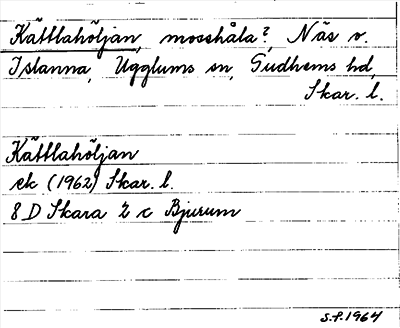 Kättlahöljan, mosshåla?, Näs v.
Islanna, Ugglums sn, Gudhems hd,
Skar. l.
Kättlahöljan
ek (1962) Skar. l.
8 D Skara 2 c Bjurum
S.F. 1964